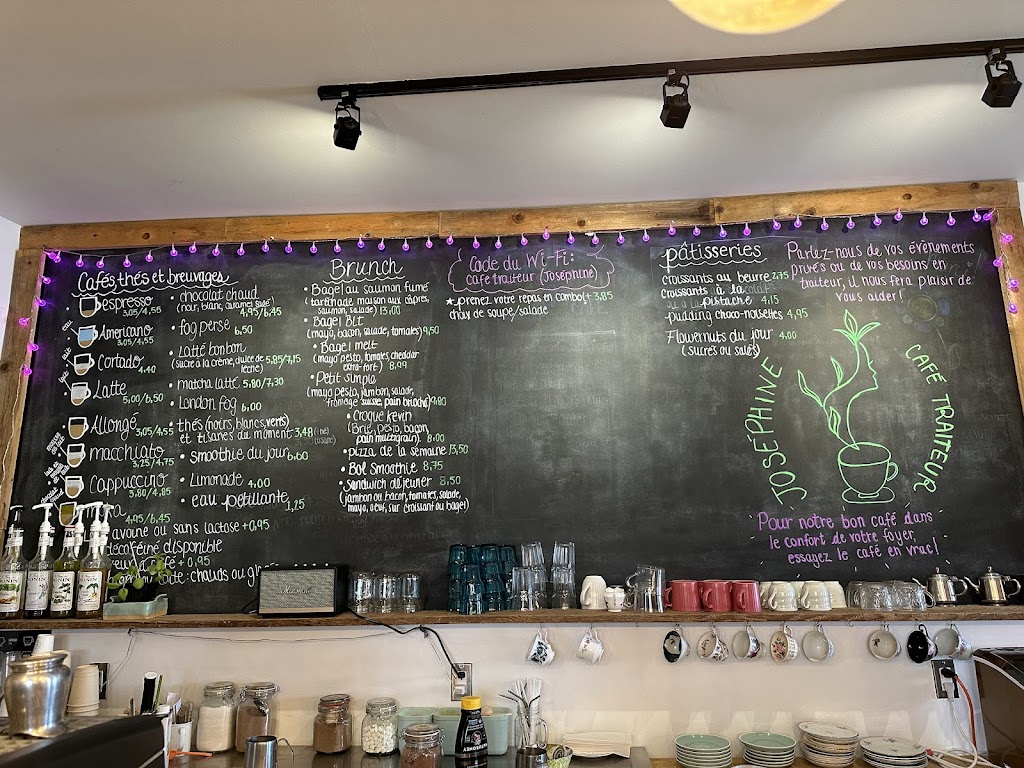 Cafés, thés et breuvages
espresso
3,05/4,55
Americano
3,05/4,55
Cortado
4,40
Latte
5,00/6,50
Allongé
3,05/4,55
macchiato
3,25/4,75
Cappuccino
3,80/4,85
4,95/6,45
avoine ou sans lactose +0,95
décaféiné disponible
café +0,95
chauds ou
• chocolat chaud
(noir, blanc, caramel salé)
4,95/6,45
• fog perse 6,50
• Latté bonbon
(sucre à la crème, dulce de leche) 5,85/7,15
• matcha latté 5,80/7,30
• London fog 6,00
• thés (noirs, blancs, verts)
et tisanes du moment 3,48
• smoothie du jour 6,60
• Limonade 4,00
• eau pétillante 1,25
Brunch
• Bagel au saumon fumé
(tartinade maison aux câpres,
saumon, salade) 13,00
• Bagel BLT
(mayo, bacon, salade, tomates) 9,50
• Bagel melt
(mayo pesto, tomates, cheddar
extra-fort) 8,99
• Petit simple
(mayo pesto, jambon, salade,
fromage suisse, pain brioché) 9,80
• Croque Kevin
(Brie, pesto, bacon,
pain multigrain). 8,00
• pizza de la semaine 13,50
• Bol smoothie 8,75
• Sandwich déjeuner 8,50
(jambon ou bacon, tomates, salade,
mayo, oeuf, sur croissant ou bagel)
Code du Wi-Fi:
Café traiteur (Joséphine)
★ prenez votre repas en combo! + 3,85
choix de soupe/salade
pâtisseries
croissants au beurre 2,75
croissants à la
pistache 4,15
pudding choco-noisettes 4,95
Flowernuts du jour 4,00
(sucrés ou salés)
Parlez-nous de vos évènements
privés ou de vos besoins en
traiteur, il nous fera plaisir de
vous aider!
JOSÉPHINE
CAFÉ TRAITEUR
Pour notre bon café dans
le confort de votre foyer,
essayez le café en vrac!
Marshall
MONIN
MONIN
MONIN
MONIN